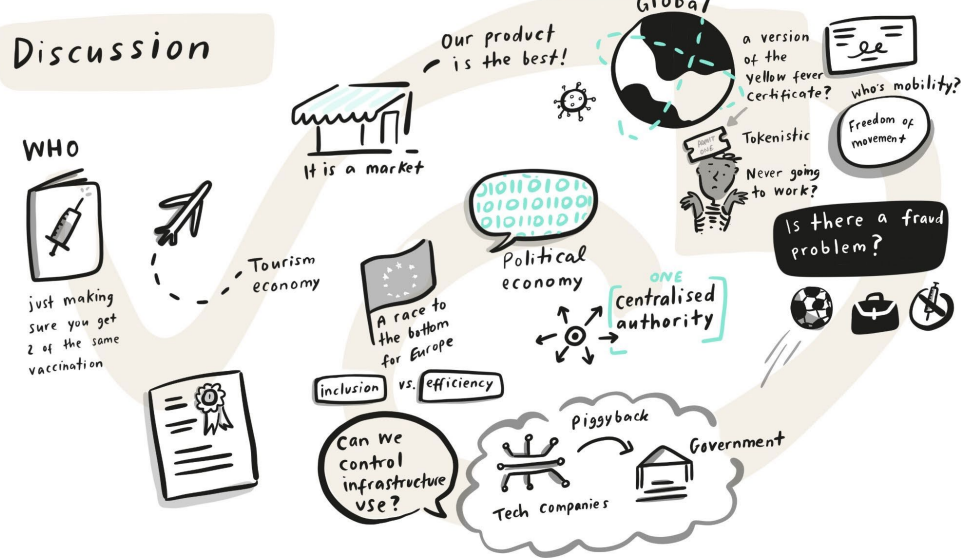 Discussion
WHO
just making
sure you get
2 of the same
vaccination
Tourism
economy
It is a market
Our product
is the best!
Global
a version
of the
yellow fever
certificate?
who's mobility?
Freedom of
movement
ADMIT
ONE
Tokenistic
Never going
to work?
Is there a fraud
problem?
0101101010
10101011001
010110101
Political
economy
ONE
centralised
authority
A race to
the bottom
for Europe
inclusion vs. efficiency
Can we
control
infrastructure
use?
Piggyback
Tech Companies
Government